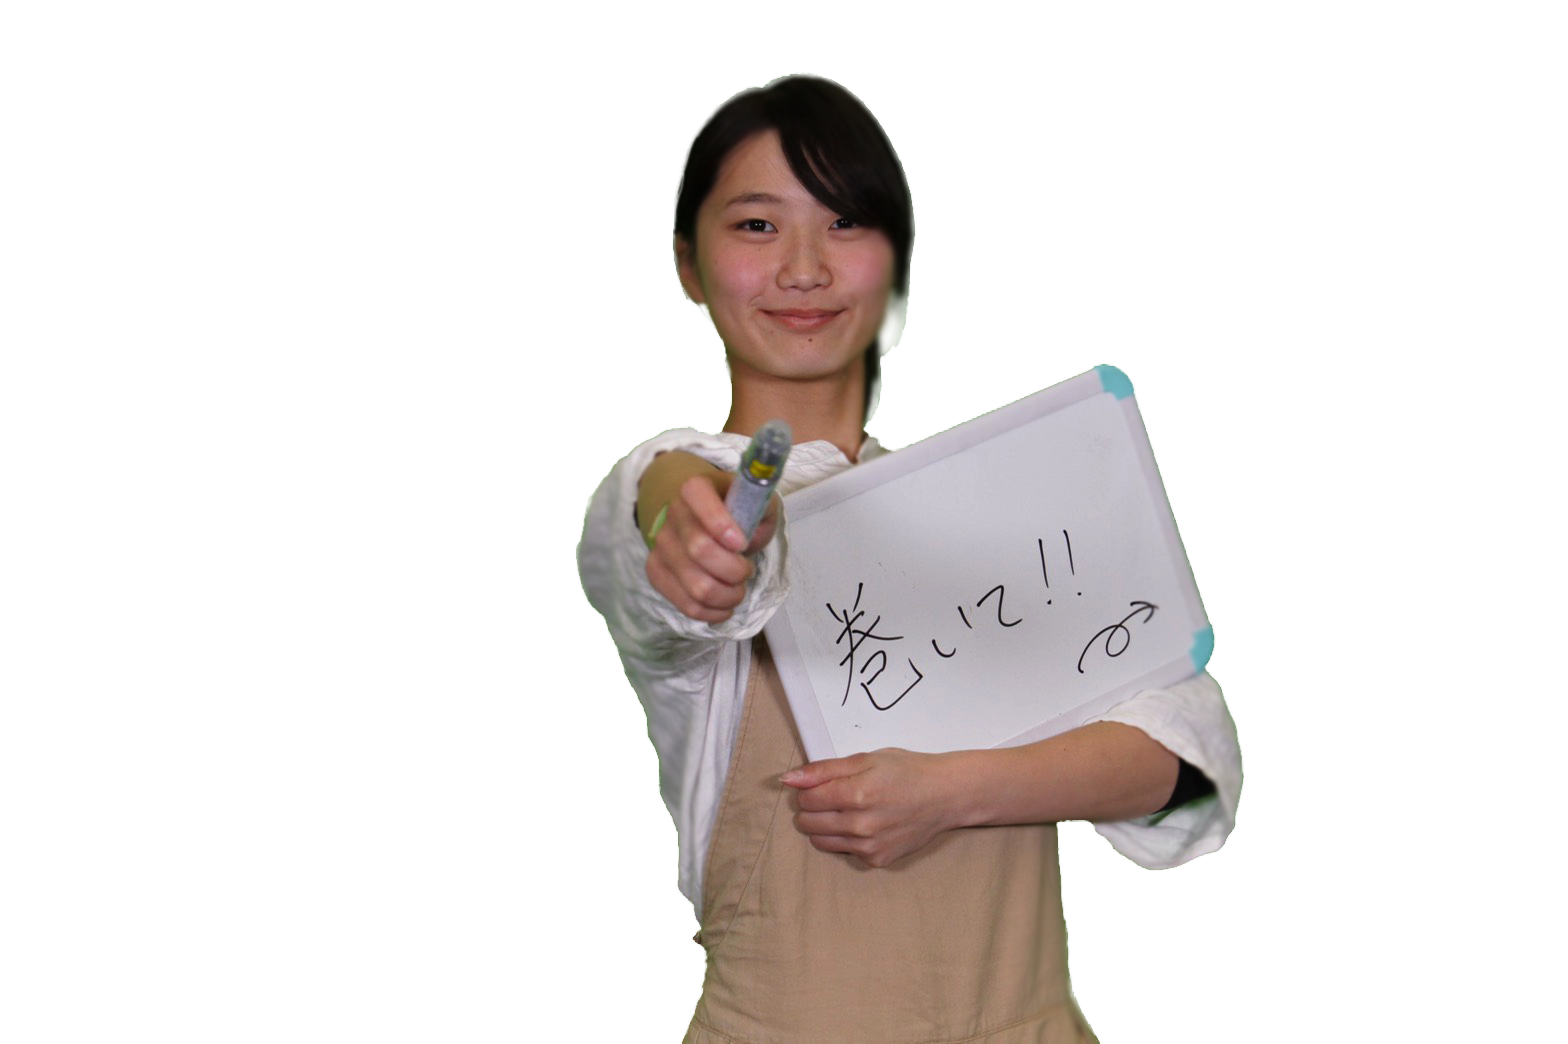 巻いて!!